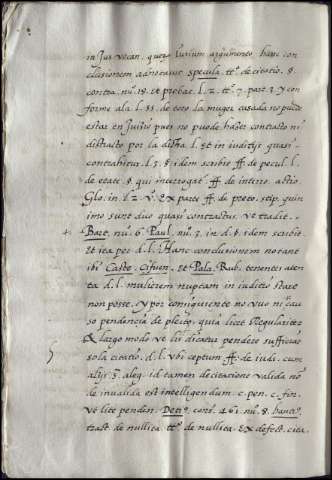 in Jus vocan. quero lucium argumento, hanc con
clusionem adnotavit specula. tt.º de citatio. §.
contra. nu.º 18. et probat. l. 2. tt.º 7. part. 3. y con
forme a la l. 55. de toro la muger casada no puede
estar en Juiçio pues no puede haber contracto ni
distracto por la dicha l. et in inditijs quasi
contrahitur. l. 3. §. idem scribit ff. de pecul. l.
de etate §. qui interrogat. ff. de interro. actio.
Glo. in. l. 2. v.º Ex parte ff. de preto. stip. quin
imo sunt duo quasi contractus. ut tradit.
Bart. nu. 6. Paul. nu. 3. in. d. §. idem scribit
et ita per d. l. Hanc conclusionem notant
ibi Casto. Cifuen. et Pala. Rub. tenentes aten
ta d. l. mulierem nuptam in iuditio stare
non posse. y por consiguiente no uvo ni cau
so pendençia de pleito, quia licet Regulariter
& largo modo ut lis dicatur pendere sufficiat
sola citatio. d. l. ubi ceptum ff. de iudi. cum
alijs s. aleg. id tamen de citatione valida nō
de invalida est intelligendum. c. pen. c. fin.
ut lite penden. Deti.º cons. 461. nu. 8. banti.º
tract. de nullita. tt.º de nullita. Ex defect. cita.